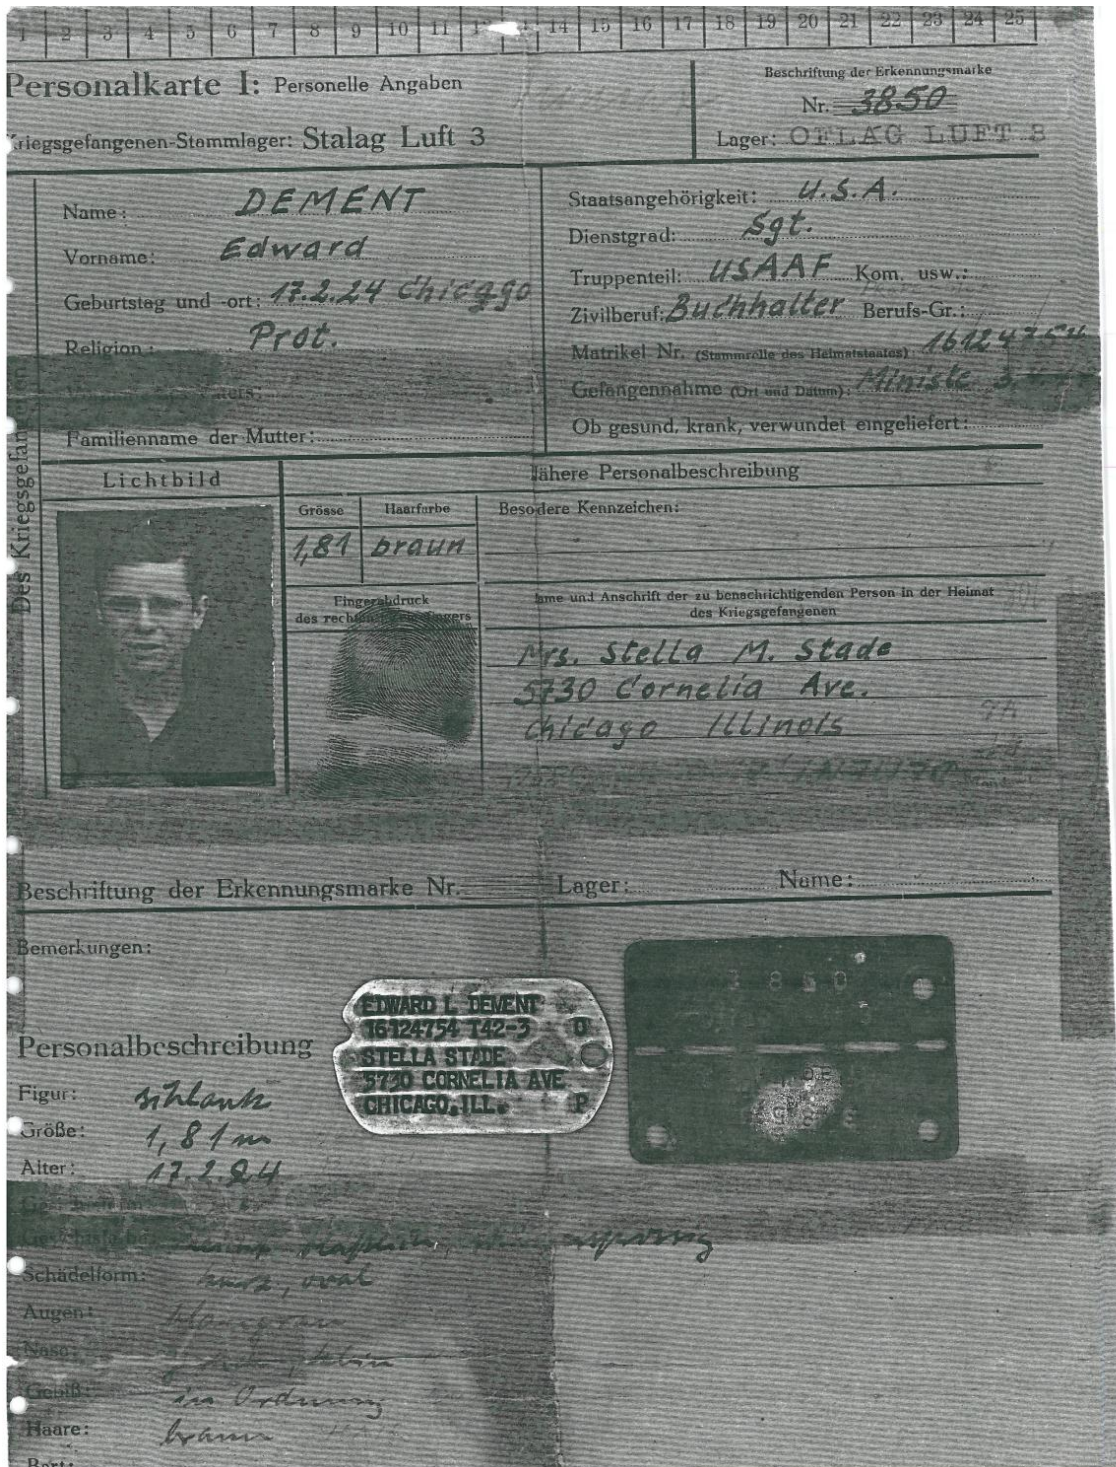 1 2 3 4 5 6 7 8 9 10 11 14 15 16 17 18 19 20 21 22 23 24 25
Personalkarte I: Personelle Angaben
Kriegsgefangenen-Stammlager: Stalag Luft 3
Beschriftung der Erkennungsmarke
Nr. 3850
Lager: OFLAG LUFT 3
Des Kriegsgefangenen
Name: DEMENT
Vorname: Edward
Geburtstag und -ort: 17.2.24 Chicago
Religion: Prot.
Familienname der Mutter:
Staatsangehörigkeit: U.S.A.
Dienstgrad: Sgt.
Truppenteil: USAAF Kom. usw.:
Zivilberuf: Buchhalter Berufs-Gr.:
Matrikel Nr. (Stammrolle des Heimatstaates): 16124754
Gefangennahme (Ort und Datum): Ministe
Ob gesund, krank, verwundet eingeliefert:
Lichtbild
Nähere Personalbeschreibung
Grösse Haarfarbe
1,81 braun
Besodere Kennzeichen:
Fingerabdruck
des rechten
ame und Anschrift der zu benachrichtigenden Person in der Heimat
des Kriegsgefangenen
Mrs. Stella M. Stade
5730 Cornelia Ave.
Chicago Illinois
Beschriftung der Erkennungsmarke Nr. Lager: Name:
Bemerkungen:
EDWARD L DEMENT
16124754 T42-3 O
STELLA STADE
5730 CORNELIA AVE
CHICAGO, ILL. P
3850
Personalbeschreibung
Figur: schlank
Größe: 1,81 m
Alter: 17.2.24
Schädelform: kurz, oval
Augen: blaugrau
Nase: klein
Gebiß: in Ordnung
Haare: braun
Bart: